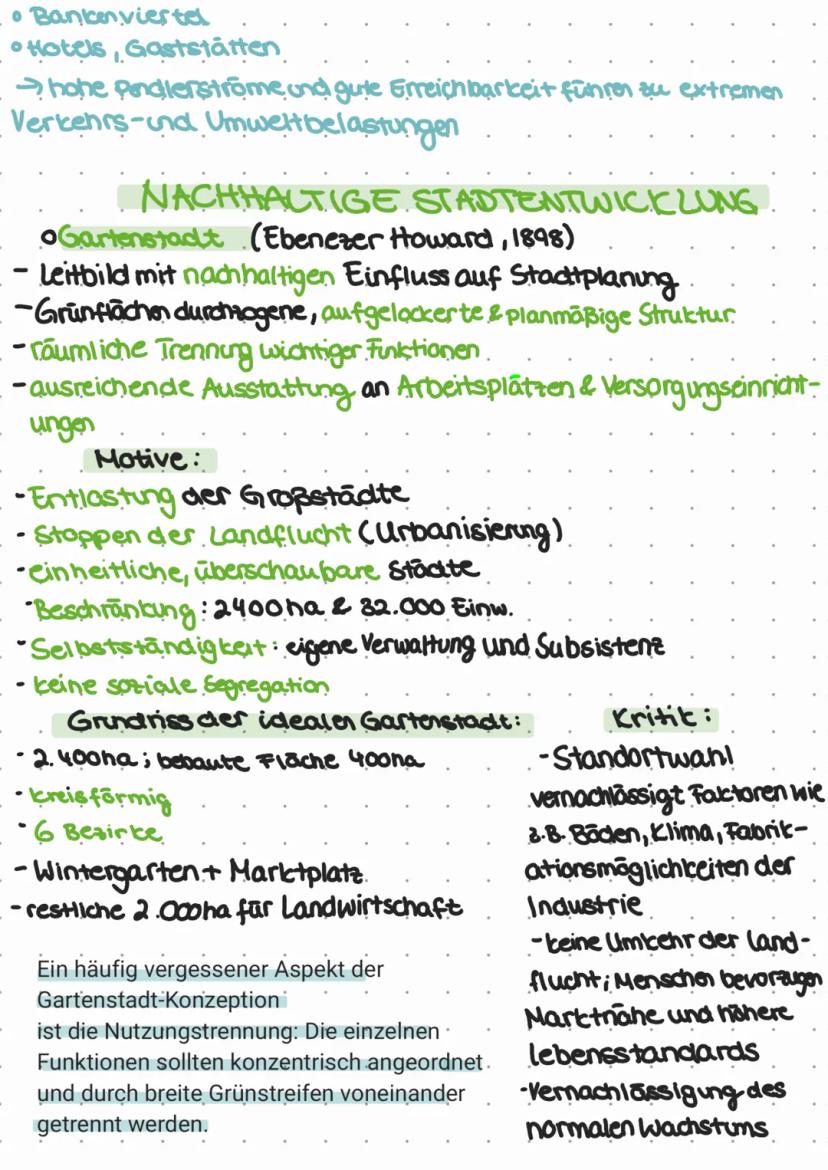 ° Bankenviertel
° Hotels, Gaststätten
→ hohe Pendlerströme und gute Erreichbarkeit führen zu extremen
Verkehrs- und Umweltbelastungen
NACHHALTIGE STADTENTWICKLUNG
° Gartenstadt (Ebenezer Howard, 1898)
- Leitbild mit nachhaltigen Einfluss auf Stadtplanung
- Grünflächen durchzogene, aufgelockerte & planmäßige Struktur
- räumliche Trennung wichtiger Funktionen
- ausreichende Ausstattung an Arbeitsplätzen & Versorgungseinricht-
ungen
Motive:
- Entlastung der Großstädte
- Stoppen der Landflucht (Urbanisierung)
- einheitliche, überschaubare Städte
- Beschränkung: 2400 ha & 32.000 Einw.
- Selbstständigkeit: eigene Verwaltung und Subsistenz
- keine soziale Segregation
Grundriss der idealen Gartenstadt:
- 2.400ha; bebaute Fläche 400ha
- kreisförmig
- 6 Bezirke
- Wintergarten + Marktplatz
- restliche 2.000ha für Landwirtschaft
Ein häufig vergessener Aspekt der
Gartenstadt-Konzeption
ist die Nutzungstrennung: Die einzelnen
Funktionen sollten konzentrisch angeordnet
und durch breite Grünstreifen voneinander
getrennt werden.
Kritik:
- Standortwahl
vernachlässigt Faktoren wie
z.B. Böden, Klima, Fabrik-
ationsmöglichkeiten der
Industrie
- keine Umkehr der Land-
flucht; Menschen bevorzugen
Marktnähe und höhere
Lebensstandards
- Vernachlässigung des
normalen Wachstums